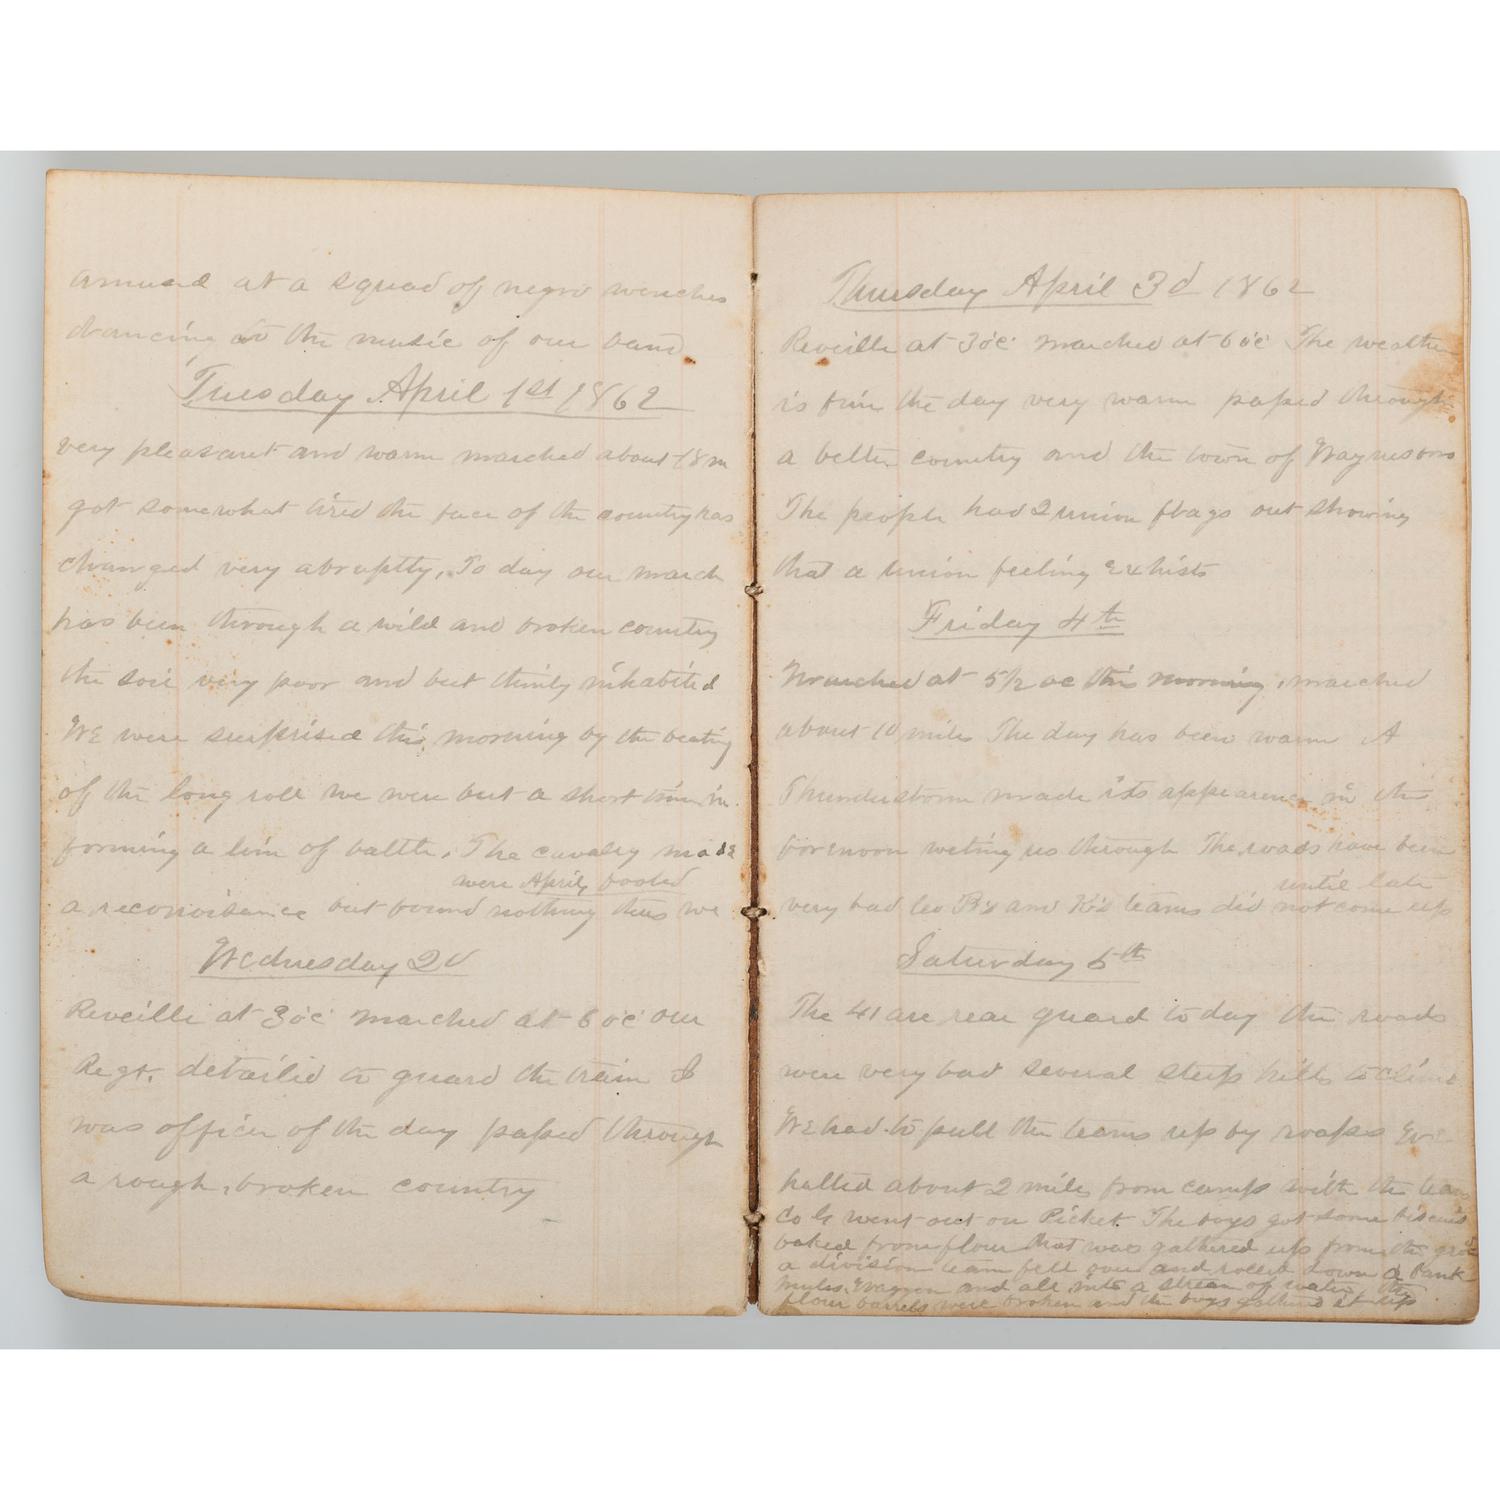 amused at a squad of negro wenches
dancing to the music of our band
Tuesday April 1st 1862
very pleasant and warm marched about 18 m
got somewhat tired the face of the country has
changed very abruptly, To day our march
has been through a wild and broken country
the soil very poor and but thinly inhabited
We were surprised this morning by the beating
of the long roll we were but a short time in
forming a line of battle. The cavalry made
were April fooled
a reconoisance but found nothing thus we
Wednesday 2d
Reveille at 3 oc marched at 6 oc our
Regt. detailed to guard the train I
was officer of the day passed through
a rough, broken country
Thursday April 3d 1862
Reveille at 3 oc marched at 6 oc The weather
is fine the day very warm passed through
a better country and the town of Waynesboro
The people had 2 union flags out showing
that a union feeling exhists
Friday 4th
Marched at 5 1/2 oc this morning, marched
about 10 miles The day has been warm A
Thunderstorm made its appearence in the
forenoon weting us through The roads have been
until late
very bad Co B's and K's teams did not come up
Saturday 5th
The 41 are rear guard to day the roads
were very bad several steep hills to climb
We had to pull the teams up by roaps
halted about 2 miles from camp with the team
Co G went out on Picket. The boys got some biscuits
baked from flour that was gathered up from the ground
a division team fell over and rolled down a bank
mules, Waggon and all into a stream of water, the
flour barrels were broken and the boys gathered it up